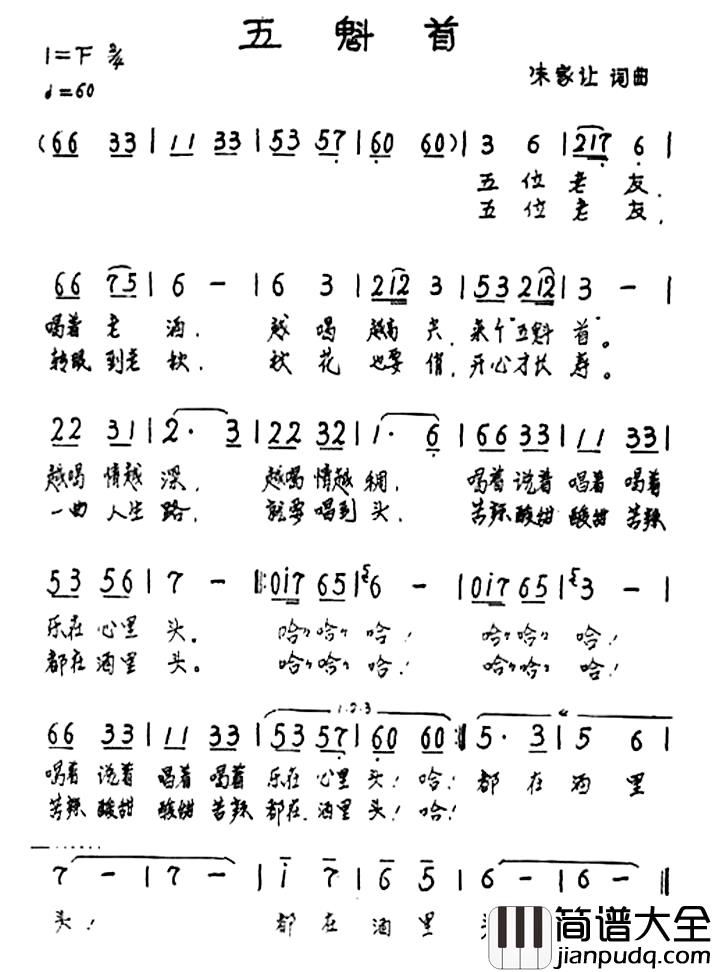 五魁首
1=下 2/4
♩=60
朱家让 词曲
(66 33 | 11 33 | 53 57 | 60 60) | 3 6 | 217 6 |
五位老友,
五位老友,
66 75 | 6 - | 6 3 | 212 3 | 53 212 | 3 - |
喝着老酒, 越喝越高兴,来个"五魁首"。
转眼到老秋, 秋花也要俏,开心才长寿。
22 31 | 2· 3 | 22 32 | 1· 6 | 66 33 | 11 33 |
越喝情越深, 越喝情越稠, 喝着说着唱着喝着
一曲人生路, 就要唱到头, 苦辣酸甜酸甜苦辣
53 56 | 7 - |: 0i7 65 | 6 - | 0i7 65 | 3 - |
乐在心里头。 哈哈哈哈哈! 哈哈哈哈哈!
都在酒里头。 哈哈哈哈哈! 哈哈哈哈哈!
1.2.3
66 33 | 11 33 | 53 57 | 60 60 :| 5· 3 | 5 6 |
喝着说着唱着喝着乐在心里头!哈! 都在酒里
苦辣酸甜酸甜苦辣都在酒里头!哈!
7 - | 7 - | i 7 | 6 5 | 6 - | 6 - |
头! 都在酒里
简谱大全
www.jianpudq.com